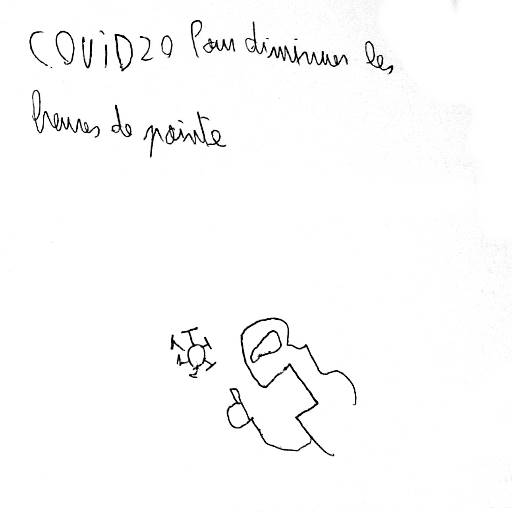 COViD20 Pour diminuer les
heures de pointe